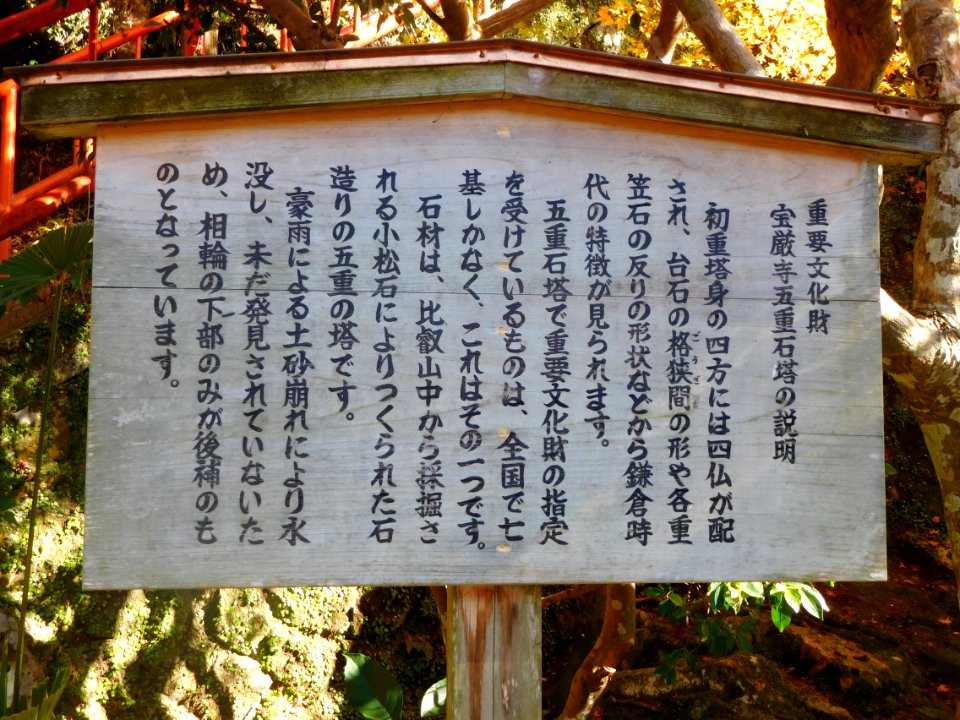 重要文化財
宝厳寺五重石塔の説明
初重塔身の四方には四仏が配
され、台石の格狭間の形や各重
ごうざま
笠石の反りの形状などから鎌倉時
代の特徴が見られます。
五重石塔で重要文化財の指定
を受けているものは、全国で七
基しかなく、これはその一つです。
石材は、比叡山中から採掘さ
れる小松石によりつくられた石
造りの五重の塔です。
豪雨による土砂崩れにより水
没し、未だ発見されていないた
め、相輪の下部のみが後補のも
のとなっています。